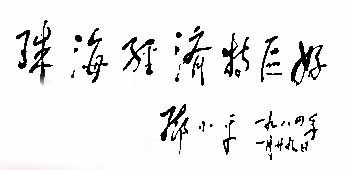 珠海经济特区好
邓小平
一九八四年
一月廿九日